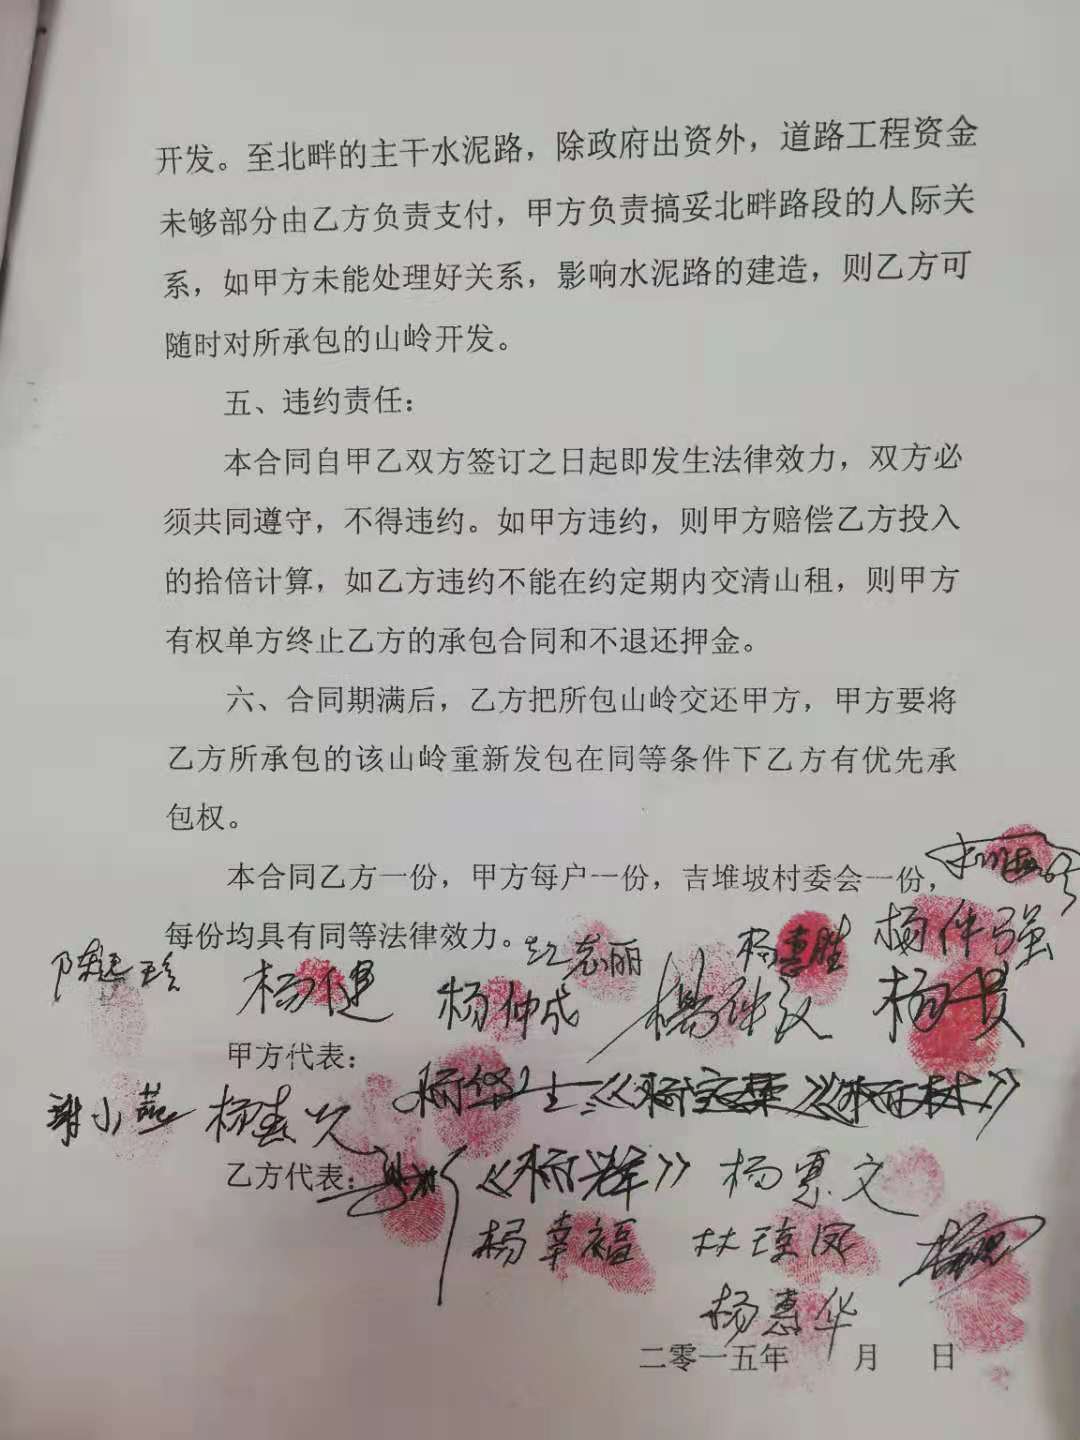 开发。至北畔的主干水泥路，除政府出资外，道路工程资金
未够部分由乙方负责支付，甲方负责搞妥北畔路段的人际关
系，如甲方未能处理好关系，影响水泥路的建造，则乙方可
随时对所承包的山岭开发。
五、违约责任：
本合同自甲乙双方签订之日起即发生法律效力，双方必
须共同遵守，不得违约。如甲方违约，则甲方赔偿乙方投入
的拾倍计算，如乙方违约不能在约定期内交清山租，则甲方
有权单方终止乙方的承包合同和不退还押金。
六、合同期满后，乙方把所包山岭交还甲方，甲方要将
乙方所承包的该山岭重新发包在同等条件下乙方有优先承
包权。
本合同乙方一份，甲方每户一份，吉堆坡村委会一份，
每份均具有同等法律效力。
杨惠胜 杨仲强
杨健 杨仲成 杨贵
甲方代表：
谢小燕
乙方代表： 《杨辉》 杨惠文
杨幸福 林琼凤
杨惠华
二零一五年 月 日